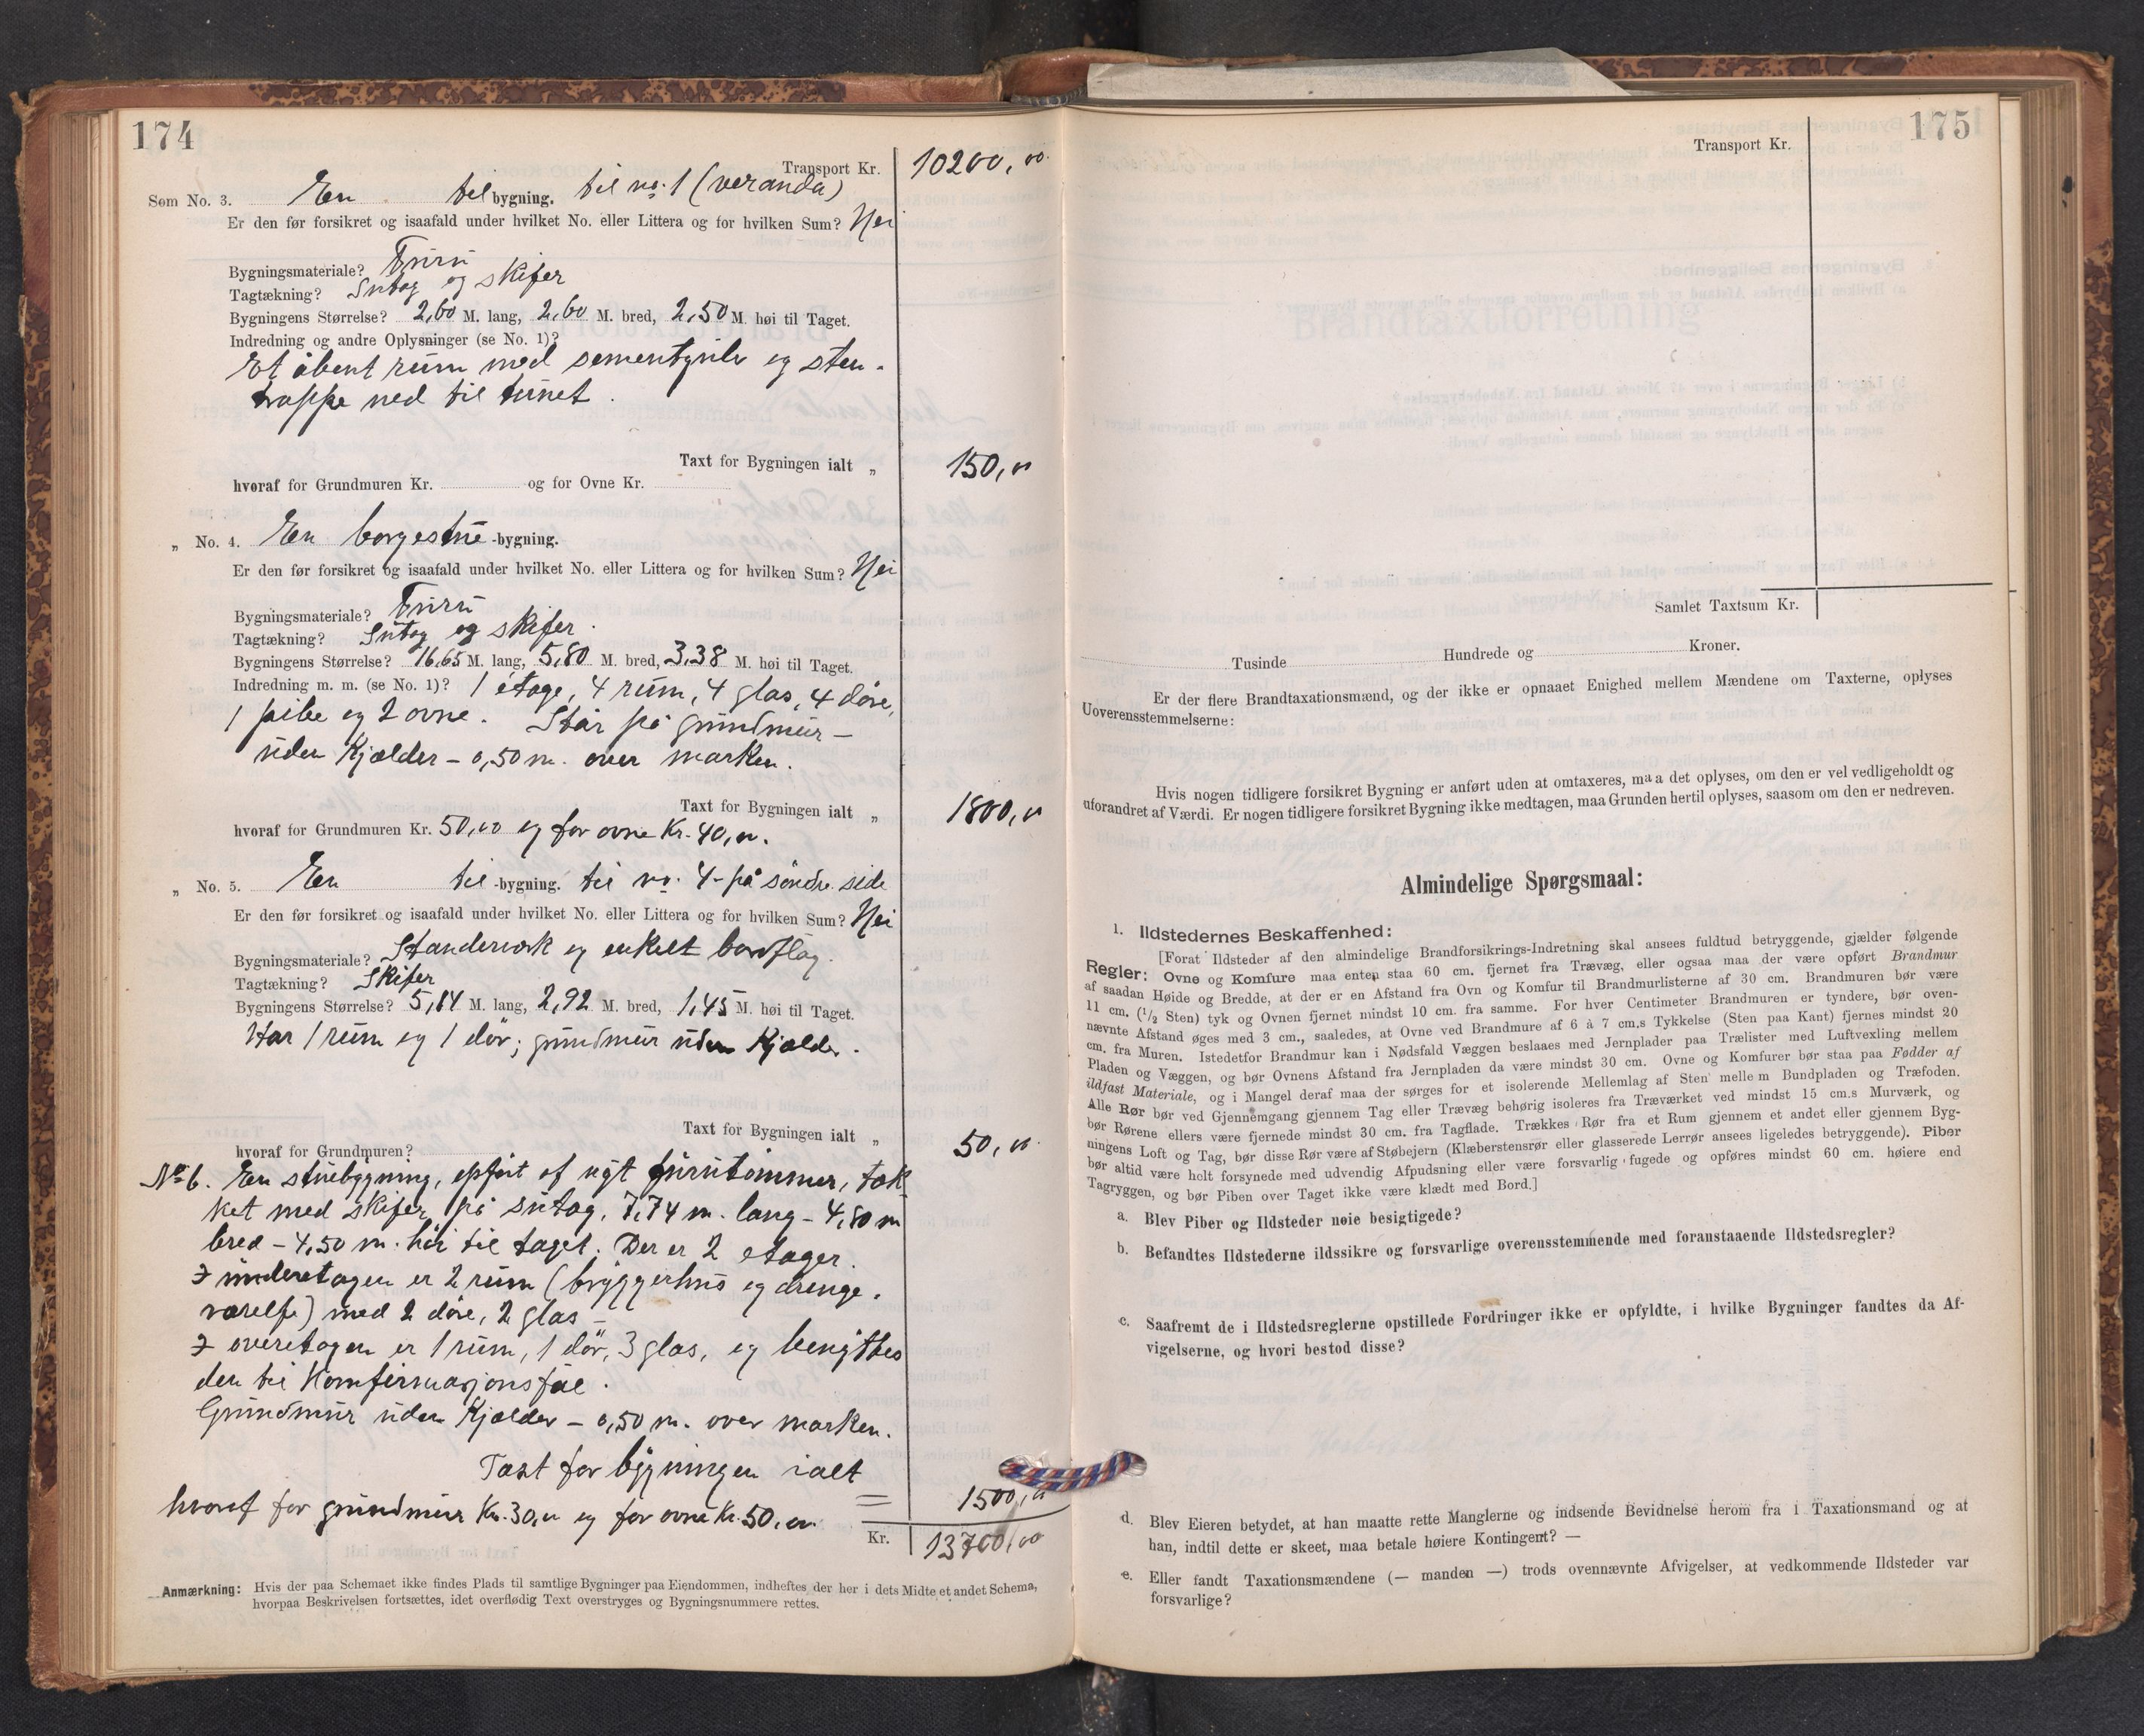 174
Transport Kr. 10200,00
Som No. 3. En tilbygning. til no. 1 (veranda)
Er den før forsikret og isaafald under hvilket No. eller Littera og for hvilken Sum? Nei
Bygningsmateriale? Furu
Tagtækning? Sutag og skifer
Bygningens Størrelse? 2,60 M. lang, 2,60 M. bred, 2,50 M. høi til Taget.
Indredning og andre Oplysninger (se No. 1)?
Et åbent rum med sementgulv og sten-
trappe ned til tunet.
Taxt for Bygningen ialt „ 150,00
hvoraf for Grundmuren Kr. og for Ovne Kr.
„ No. 4. En borgestue-bygning.
Er den før forsikret og isaafald under hvilket No. eller Littera og for hvilken Sum? Nei
Bygningsmateriale? Furu
Tagtækning? Sutag og skifer.
Bygningens Størrelse? 16,65 M. lang, 5,80 M. bred, 3,38 M. høi til Taget.
Indredning m. m. (se No. 1)? 1 etage, 4 rum, 4 glas, 4 døre,
1 pibe og 2 ovne. Står på grundmur –
uden Kjælder – 0,50 m. over marken.
Taxt for Bygningen ialt „ 1800,00
hvoraf for Grundmuren Kr. 50,00 og for ovne Kr. 40,00.
„ No. 5. En til-bygning. til no. 4 – på søndre side
Er den før forsikret og isaafald under hvilket No. eller Littera og for hvilken Sum? Nei
Bygningsmateriale? Standerverk og enkelt bordflag.
Tagtækning? Skifer
Bygningens Størrelse? 5,14 M. lang, 2,92 M. bred, 1,45 M. høi til Taget.
Har 1 rum og 1 dør; grundmur uden Kjælder.
Taxt for Bygningen ialt „ 50,00
hvoraf for Grundmuren?
No 6. En stuebygning, opført af nyt furutømmer, tæk-
ket med skifer på sutag, 7,74 m. lang – 4,80 m
bred – 4,50 m. høi til taget. Der er 2 etager.
I underetagen er 2 rum (bryggerhus og drenge-
værelse) med 2 døre, 2 glas –
I overetagen er 1 rum, 1 dør, 3 glas, og benyttes
den til Konfirmasjonssal.
Grundmur uden Kjælder – 0,50 m. over marken.
Taxt for bygningen ialt
hvoraf for grundmur Kr. 30,00 og for ovne Kr. 50,00 = 1500,00
Kr. 13700,00
Anmærkning: Hvis der paa Schemaet ikke findes Plads til samtlige Bygninger paa Eiendommen, indheftes der her i dets Midte et andet Schema,
hvorpaa Beskrivelsen fortsættes, idet overflødig Text overstryges og Bygningsnummere rettes.
175
Transport Kr.
Samlet Taxtsum Kr.
Tusinde Hundrede og Kroner.
Er der flere Brandtaxationsmænd, og der ikke er opnaaet Enighed mellem Mændene om Taxterne, oplyses
Uoverensstemmelserne:
Hvis nogen tidligere forsikret Bygning er anført uden at omtaxeres, maa det oplyses, om den er vel vedligeholdt og
uforandret af Værdi. Er nogen tidligere forsikret Bygning ikke medtagen, maa Grunden hertil oplyses, saasom om den er nedreven.
Almindelige Spørgsmaal:
1. Ildstedernes Beskaffenhed:
[Forat Ildsteder af den almindelige Brandforsikrings-Indretning skal ansees fuldtud betryggende, gjælder følgende
Regler: Ovne og Komfure maa enten staa 60 cm. fjernet fra Trævæg, eller ogsaa maa der være opført Brandmur
af saadan Høide og Bredde, at der er en Afstand fra Ovn og Komfur til Brandmurlisterne af 30 cm. Brandmuren bør være
11 cm. (1/2 Sten) tyk og Ovnen fjernet mindst 10 cm. fra samme. For hver Centimeter Brandmuren er tyndere, bør oven-
nævnte Afstand øges med 3 cm., saaledes, at Ovne ved Brandmure af 6 à 7 cm.s Tykkelse (Sten paa Kant) fjernes mindst 20
cm. fra Muren. Istedetfor Brandmur kan i Nødsfald Væggen beslaaes med Jernplader paa Trælister med Luftvexling mellem
Pladen og Væggen, og bør Ovnens Afstand fra Jernpladen da være mindst 30 cm. Ovne og Komfurer bør staa paa Fødder af
ildfast Materiale, og i Mangel deraf maa der sørges for et isolerende Mellemlag af Sten mellem Bundpladen og Træfoden.
Alle Rør bør ved Gjennemgang gjennem Tag eller Trævæg behørig isoleres fra Træværket ved mindst 15 cm.s Murværk, og
bør Rørene ellers være fjernede mindst 30 cm. fra Tagflade. Trækkes Rør fra et Rum gjennem et andet eller gjennem Byg-
ningens Loft og Tag, bør disse Rør være af Støbejern (Klæberstensrør eller glasserede Lerrør ansees ligeledes betryggende). Piber
bør altid være helt forsynede med udvendig Afpudsning eller være forsvarlig fugede og opføres mindst 60 cm. høiere end
Tagryggen, og bør Piben over Taget ikke være klædt med Bord.]
a. Blev Piber og Ildsteder nøie besigtigede?
b. Befandtes Ildstederne ildssikre og forsvarlige overensstemmende med foranstaaende Ildstedsregler?
c. Saafremt de i Ildstedsreglerne opstillede Fordringer ikke er opfyldte, i hvilke Bygninger fandtes da Af-
vigelserne, og hvori bestod disse?
d. Blev Eieren betydet, at han maatte rette Manglerne og indsende Bevidnelse herom fra 1 Taxationsmand og at
han, indtil dette er skeet, maa betale høiere Kontingent? —
e. Eller fandt Taxationsmændene (— manden —) trods ovennævnte Afvigelser, at vedkommende Ildsteder var
forsvarlige?